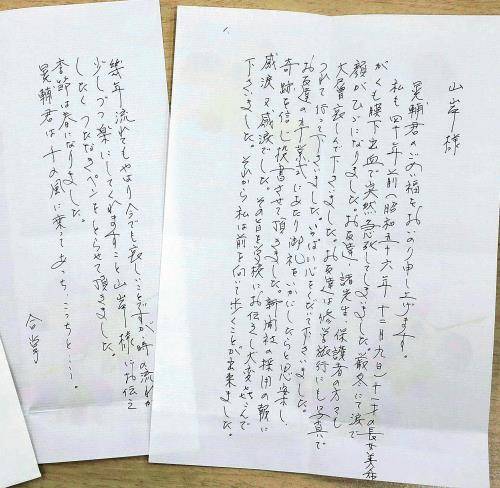 山岸様
晃輔君のごめい福をおいのり申し上げます。
私も四十年前(昭和五十六年十二月九日)十一才の長女美
がくも膜下出血で突然急死してしまいました。厳冬にて涙で
顔がひびになりました。お友達、諸先生、保護者の方々も
大層哀しんで下さいました。お友達は修学旅行にも写真で
つれて行って下さいました。いっぱい心をくだいて下さいました。
お友達の卒業式にあたり御礼をいかにしたらと思案し
奇跡を信じ投書させて頂きました。新聞社の採用の報に
感涙又感涙でした。その旨を学校にお伝えし大変よろこんで
下さいました。それから私は前を向いて歩くことが出来ました。
幾年流れてもやはり今でも哀しいことですが時の流れが
少しづつ楽にしてくれますこと山岸様にお伝え
したくつたなきペンをとらせて頂きました。
季節は春になりました。
晃輔君は千の風に乗ってあっち、こっちと・・・・。
合掌